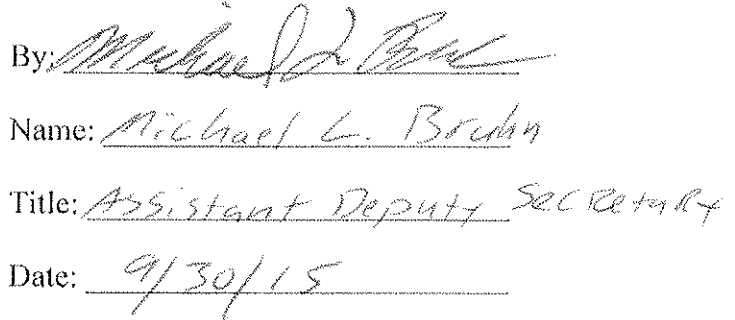 By: Michael L Bruhn
Name: Michael L. Bruhn
Title: Assistant Deputy Secretary
Date: 9/30/15